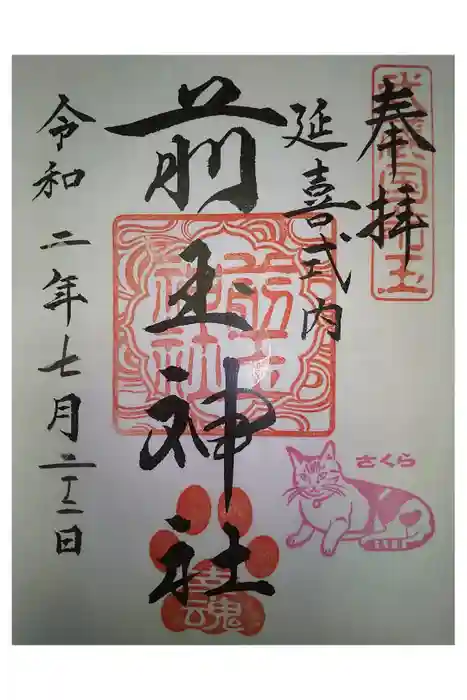 奉拝
延喜式内
前玉神社
前玉神社
さくら
幸魂
令和二年七月二十二日